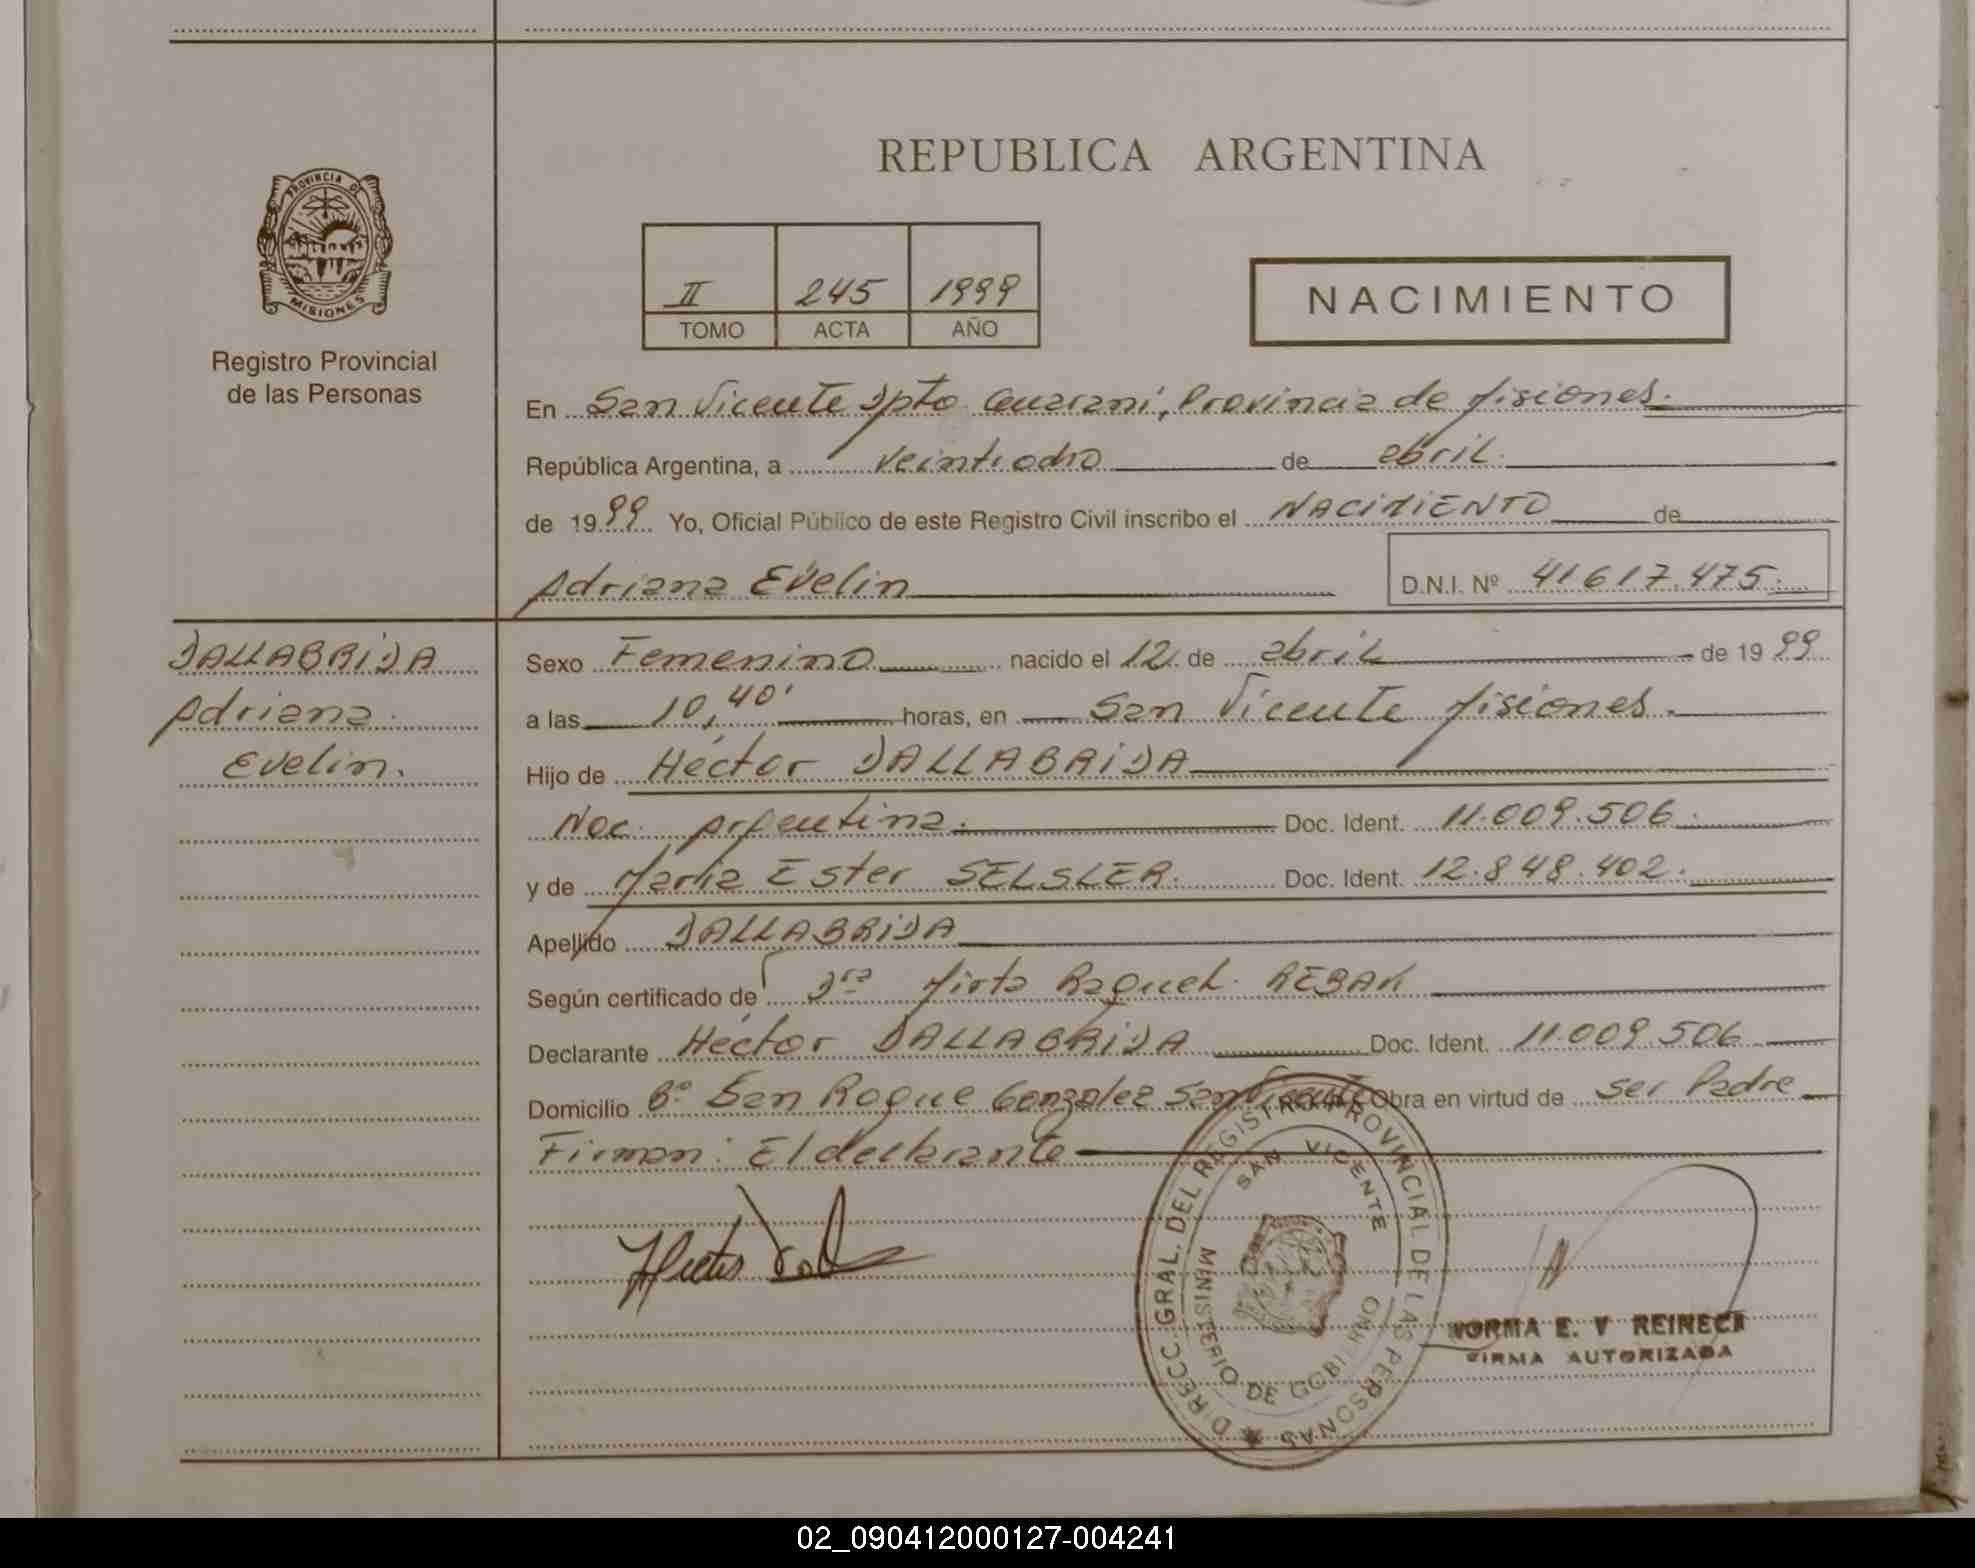 REPUBLICA ARGENTINA
PROVINCIA DE
MISIONES
Registro Provincial
de las Personas
II 245 1999
TOMO ACTA AÑO
NACIMIENTO
En San Vicente Dpto Guaraní, Provincia de Misiones.
República Argentina, a veintiocho de abril.
de 1999 Yo, Oficial Público de este Registro Civil inscribo el NACIMIENTO de
Adriana Evelin D.N.I. Nº 41617.475.
DALLABRIDA
Adriana
Evelin.
Sexo Femenino nacido el 12 de abril de 1999
a las 10,40' horas, en San Vicente Misiones.
Hijo de Héctor DALLABRIDA
Nac. Argentina. Doc. Ident. 11.009.506.
y de María Ester SELSLER. Doc. Ident. 12.848.402.
Apellido DALLABRIDA
Según certificado de Dra Mirta Raquel REBAK
Declarante Héctor DALLABRIDA Doc. Ident. 11.009.506
Domicilio Bº San Roque Gonzalez San Vicente Obra en virtud de ser Padre
Firman: El declarante
DIRECC. GRAL. DEL REGISTRO PROVINCIAL DE LAS PERSONAS
SAN VICENTE
MINISTERIO DE GOBIERNO
NORMA E. V REINECK
FIRMA AUTORIZADA
02_090412000127-004241